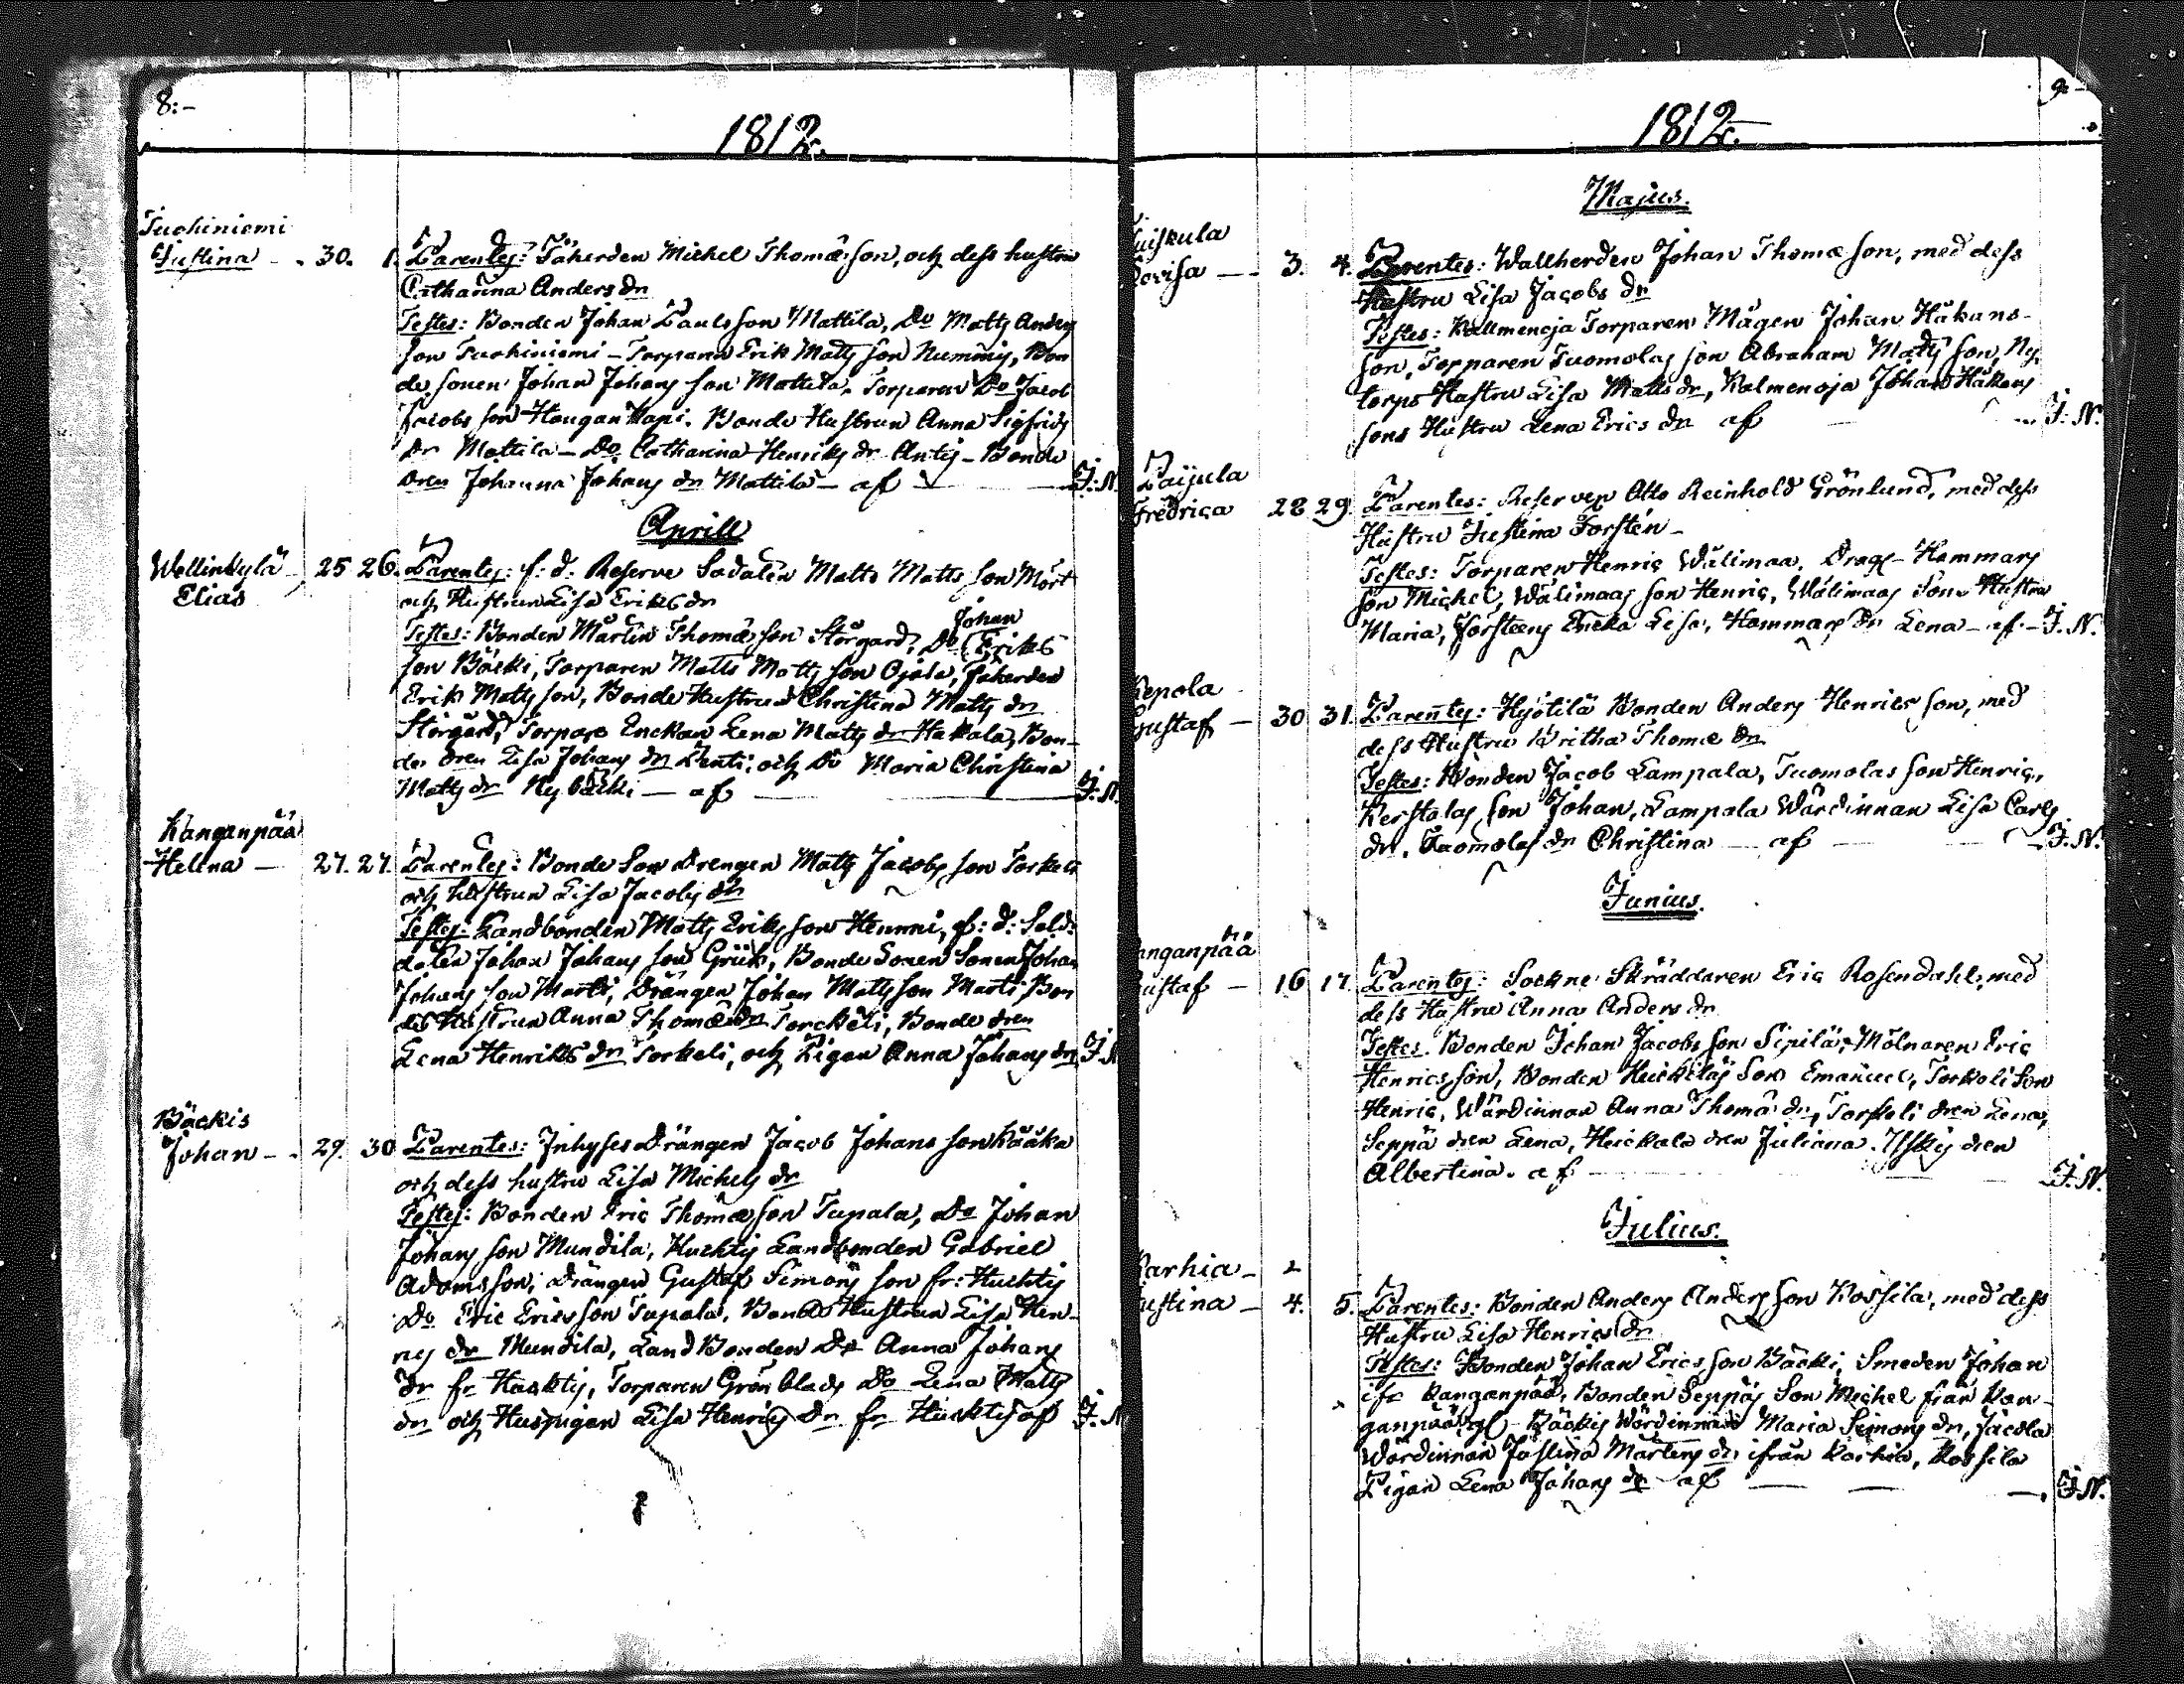 8:-
1812.
Tuohiniemi
Justina - . 30. 1. Parentes: Fåherden Michel Thomæ son, och dess hustru
Catharina Anders dr
Testes: Bonden Johan Pauls son Mattila, Do Matts Anders
son Tuohiniemi - Torparen Erik Matts son Nummis, Bon
de sonen Johan Johans son Mattila. Torparen Do Jacob
Jacobs son Haugan . Bonde Hustrun Anna Sigfrids
dr Mattila - Do Catharina Henriks dr Antis - Bonde
dren Johanna Johans dr Mattila - af - J: N.
Aprill
Wellinkylä 25 26. Parentes: f: d: Reserve Sodaten Matts Matts son Mört
Elias och Hustrun Lisa Eriks dr
Johan
Testes: Bonden Mårtin Thomæ son Storgard, Do Eriks
son Bäcki, Torparen Matts Matts son Ojala, Fåherden
Erik Matts son, Bonde Hustrun Christina Matts dr
Storgård, Torpare Enckan Lena Matts dr Hakala, Bon-
de dren Lisa Johans dr Penti, och Do Maria Christina
Matts dr Nybäcki - af - J: N.
Kanganpää
Helena - 27. 27. Parentes: Bonde Son Drengen Matts Jacobs son Torkeli
och hustrun Lisa Jacobs dr
Testes: Landbonden Matts Eriks son Hemmi, f: d: Sold:
daten Johan Johans son Grük, Bonde Sonen Sonen Johan
Johans son Marti, Drängen Johan Matts son Marti Bon
de Hustrun Anna Thomæ dr Torckeli, Bonde dren
Lena Henriks dr Torkeli, och Pigan Anna Johans dr J: N
Bäckis
Johan - . 29. 30 Parentes: Inhyses Drängen Jacob Johans son Kååka
och dess hustru Lisa Michels dr
Testes: Bonden Eric Thomæ son Tupala, Do Johan
Johans son Mundila, Huchtis Landbonden Gabriel
Adams son, Drängen Gustaf Simons son fr: Huchtis
Do Eric Erics son Tupala, Bonde Hustrun Lisa Hen-
rics dr Mundila, Land Bonden Do Anna Johans
dr fr Huchtis, Torparen Grön blads Do Lena Matts
dr och Huspigan Lisa Henrics dr fr Huchtis af J: N
9:-
1812.
Majus.
uiskula
Lovisa - 3. 4. Parentes: Wallherden Johan Thomæ son, med dess
Hustru Lisa Jacobs dr
Testes: Kallmenoja Torparen Mågen Johan Håkans-
son, Torparen Tuomolas son Abraham Matts son, Ny-
torps Hustru Lisa Matts dr, Kalmenoja Johan Håkans
sons Hustru Lena Erics dr af - J: N.
Laijula
Fredrica 28 29. Parentes: Reserven Otto Reinhold Grönlund, med dess
Hustru Justina Forstén -
Testes: Torparen Henric Wälimaa, Drag- Hammars
son Michel, Wälimaas son Henric, Wälimaas Sons Hustru
Maria, Forsteens Encka Lisa, Hammars dr Lena - af - J. N.
Kepola
Gustaf - 30 31. Parentes: Hyötilä Bonden Anders Henrics son, med
dess Hustru Britha Thomæ dr
Testes: Bonden Jacob Lampala, Tuomolas son Henric,
Kerstolas son Johan, Lampala Wärdinnan Lisa Carls
dr. Tuomolas dr Christina - af - J. N.
Junius.
anganpää
ustaf - 16 17. Parentes: Sockne Skräddaren Eric Rosendahl, med
dess Hustru Anna Anders dr
Testes. Bonden Johan Jacobs son Sipilä, Mölnaren Eric
Henrics son, Bonden Heickiläs Son Emanuel, Torkeli Son
Henric, Wärdinnan Anna Thomæ dr, Torkeli dren Lena,
Seppä dren Lena, Heickala dren Juliana. dren
Albertina. af - J. N.
Julius.
Karhia - 2
ustina - 4. 5. Parentes: Bonden Anders Anders son Kossila, med dess
Hustru Lisa Henrics dr
Testes: Bonden Johan Erics son Bäcki, Smeden Johan
ifr Kanganpää, Bonden Seppäs Son Michel från Kan-
ganpää, Bäckis Wärdinnan Maria Simons dr, Jaeola
Wärdinnan Justina Mårtens dr ifrån Karhia, Kossila
Pigan Lena Johans dr af - J. N.